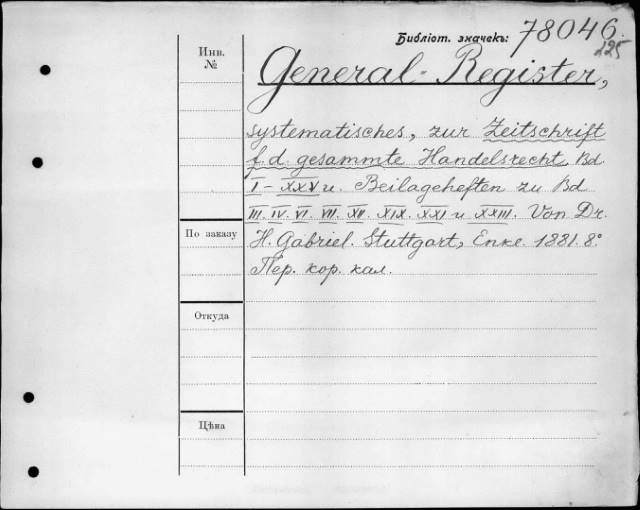 Библіот. значекъ: 78046.
125
Инв.
№
General-Register,
systematisches, zur Zeitschrift
f. d. gesammte Handelsrecht, Bd.
I-XXV u. Beilageheften zu Bd.
III. IV. VI. VII. XII. XIX. XXI u XXIII. Von Dr.
По заказу
H. Gabriel. Stuttgart, Enke. 1881. 8.°
Пер. кор. кал.
Откуда
Цѣна